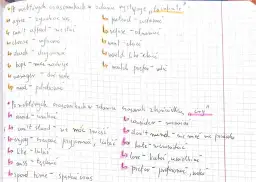 * Po niektórych czasownikach w zdaniu występuje „to infinitive"
↳ agree - zgadzać się
↳ can't afford - nie stać
↳ choose - wybierać
↳ decide - decydować
↳ hope - mieć nadzieję
↳ manage - dać radę
↳ need - potrzebować
↳ pretend - udawać
↳ refuse - odmawiać
↳ want - chcieć
↳ would like - chcieć
↳ would prefer - woleć
* Po niektórych czasownikach w zdaniu czasownik „ing"
↳ avoid - unikać
↳ can't stand - nie móc znieść
↳ enjoy - czerpać przyjemność, lubić
↳ like - lubić
↳ miss - tęsknić
↳ spend time - spędzać czas
↳ consider - rozważać
↳ don't mind - nie mieć nic przeciwko
↳ hate - nienawidzić
↳ love - kochać, uwielbiać
↳ prefer - preferować, woleć